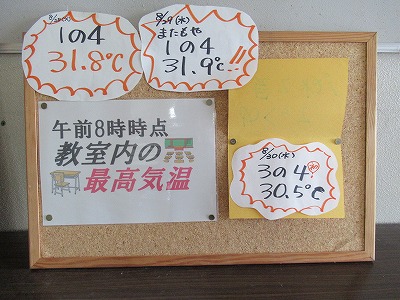 1の4
31.8℃
8/29(水)
またもや
1の4
31.9℃!!
午前8時時点
教室内の
最高気温
8/30(木)
3の4
30.5℃